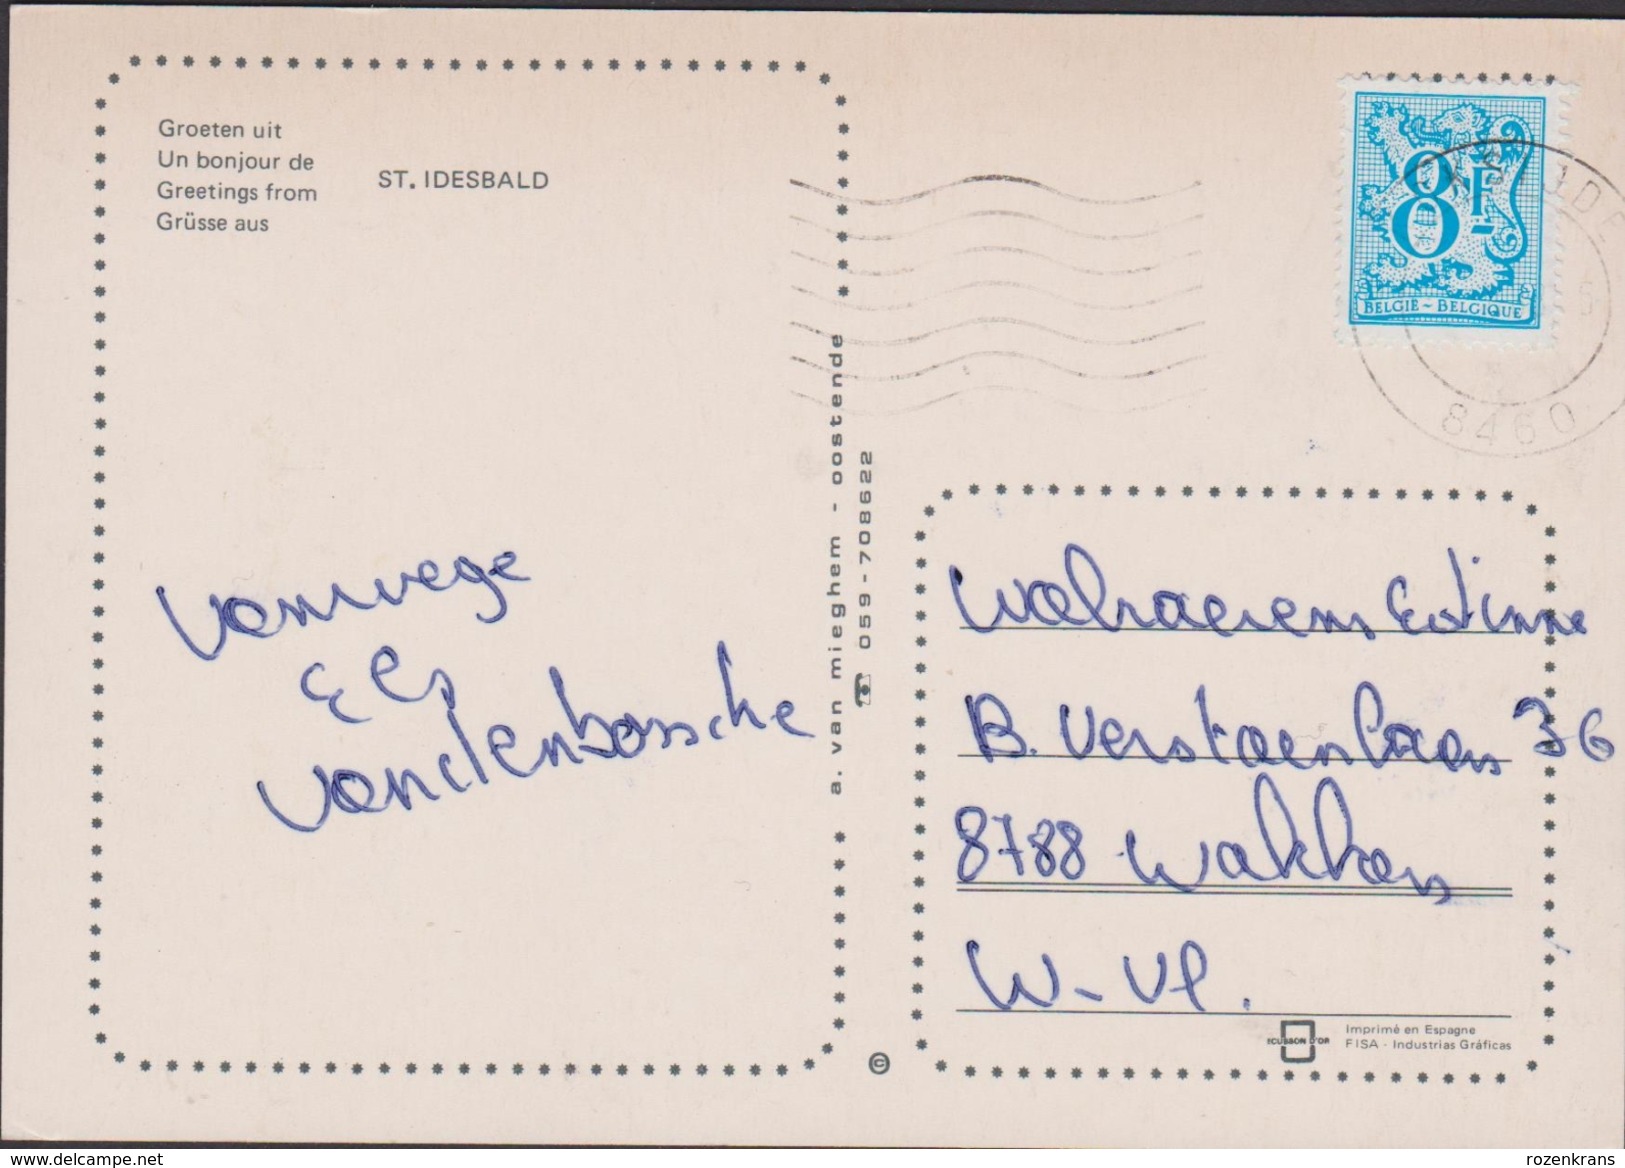 Groeten uit
Un bonjour de
Greetings from
Grüsse aus
ST. IDESBALD
8F
BELGIE ~ BELGIQUE
8460
a. van mieghem - oostende
☎ 059-708622
Vanwege
Els
Vandenbossche
Walraevens Estinne
B. Verstaenlaan 36
8788 Wakken
W-Vl.
ECUSSON D'OR
Imprimé en Espagne
FISA - Industrias Gráficas
©
www.delcampe.net
rozenkrans